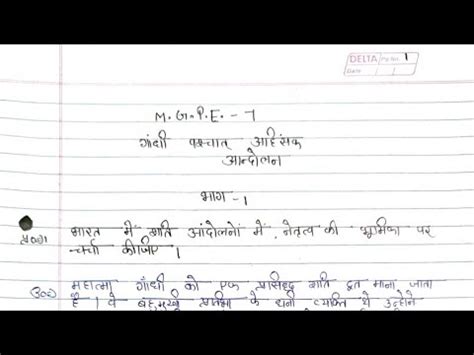 DELTA Pg No. 1
Date
M.G.P.E. - 7
गांधी पश्चात् अहिंसक
आन्दोलन
भाग - 1
भारत में शांति आंदोलनों में नेतृत्व की भूमिका पर
चर्चा कीजिए ।
महात्मा गाँधी को एक प्रसिद्ध शांति दूत माना जाता
है । वे बहुमुखी प्रतिभा के धनी व्यक्ति थे उन्होंने